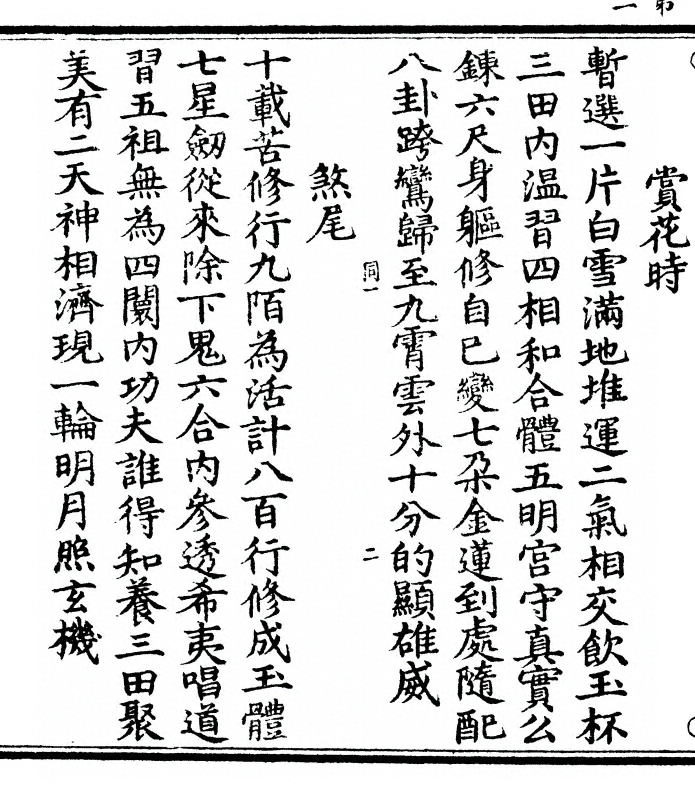 賞花時
暫選一片白雪滿地堆運二氣相交飲玉杯
三田内温習四相和合體五明宮守真實公
鍊六尺身軀修自巳變七朶金蓮到處隨配
八卦跨鸞歸至九霄雲外十分的顯雄威
同一 二
煞尾
十載苦修行九陌為活計八百行修成玉體
七星劒從來除下鬼六合内參透希夷唱道
習五祖無為四闌内功夫誰得知養三田聚
美有二天神相濟現一輪明月照玄機